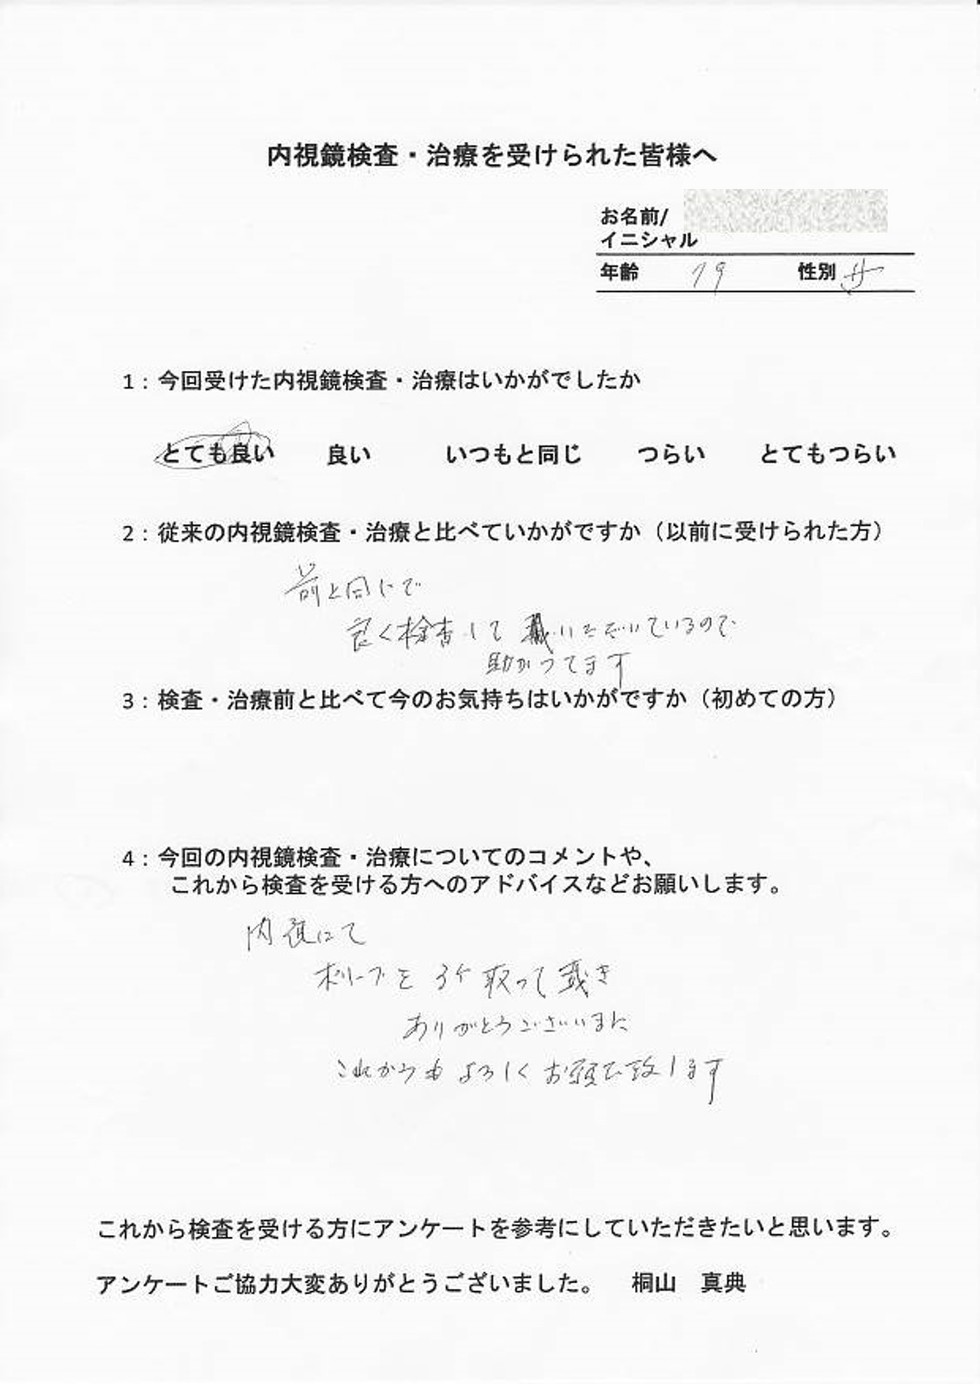 内視鏡検査・治療を受けられた皆様へ
お名前/
イニシャル
年齢 79 性別 女
1：今回受けた内視鏡検査・治療はいかがでしたか
とても良い 良い いつもと同じ つらい とてもつらい
2：従来の内視鏡検査・治療と比べていかがですか（以前に受けられた方）
前と同じで
良く検査して いただいているので
助かってます
3：検査・治療前と比べて今のお気持ちはいかがですか（初めての方）
4：今回の内視鏡検査・治療についてのコメントや、
これから検査を受ける方へのアドバイスなどお願いします。
内視にて
ポリープを 3ケ 取って戴き
ありがとうございました
これからも よろしく お願い致します
これから検査を受ける方にアンケートを参考にしていただきたいと思います。
アンケートご協力大変ありがとうございました。 桐山 真典